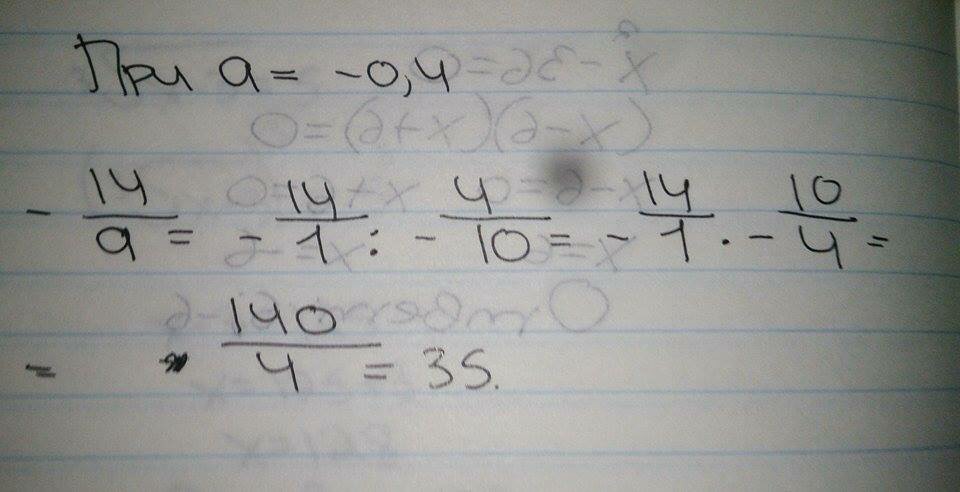 При a = -0,4
- 14/a = - 14/1 : - 4/10 = - 14/1 · - 10/4 =
= 140/4 = 35.